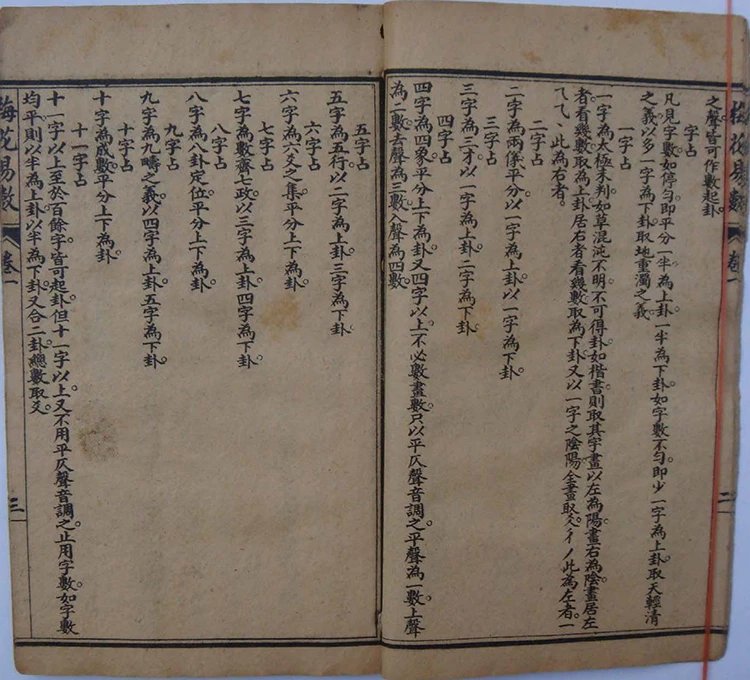 梅花易數 卷一 二
之聲皆可作數起卦。
字占
凡見字數如停勻即平分一半為上卦一半為下卦如字數不勻即少一字為上卦取天輕清
之義以多一字為下卦取地重濁之義
一字占
一字為太極未判如草混沌不明不可得卦如楷書則取其字畫以左為陽畫右為陰畫居左
者看幾數取為上卦居右者看幾數取為下卦又以一字之陰陽全畫取爻彳丿此為左者。一
乁乀此為右者。
二字占
二字為兩儀平分以一字為上卦以一字為下卦
三字占
三字為三才以一字為上卦二字為下卦
四字占
四字為四象平分上下為卦又四字以上不必數畫數只以平仄聲音調之平聲為一數上聲
為二數去聲為三數入聲為四數
五字占
五字為五行以二字為上卦三字為下卦
六字占
六字為六爻之集平分上下為卦
七字占
七字為數齊七政以三字為上卦四字為下卦
八字占
八字為八卦定位平分上下為卦
九字占
九字為九疇之義以四字為上卦五字為下卦
十字占
十字為成數平分上下為卦
十一字占
十一字以上至於百餘字皆可起卦但十一字以上又不用平仄聲音調之止用字數如字數
均平則以半為上卦以半為下卦又合二卦總數取爻
梅花易數 卷一 三